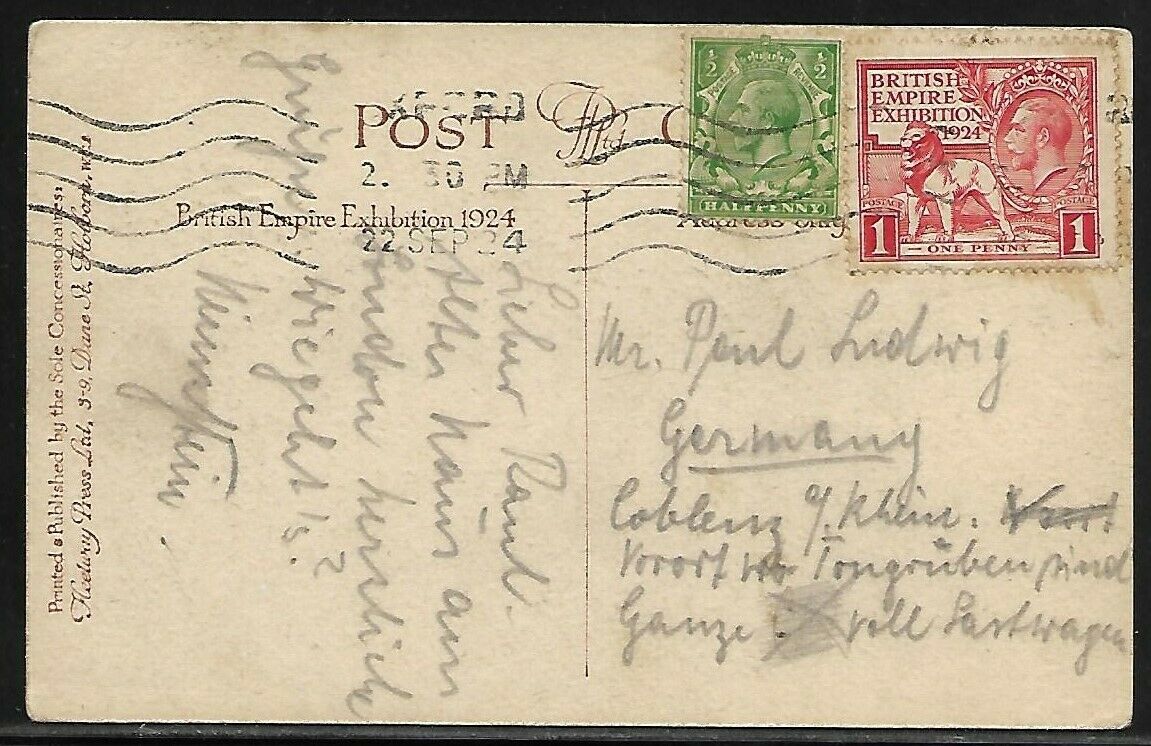 POST
British Empire Exhibition 1924
Address only
Printed & Published by the Sole Concessionaires:
Fleetway Press Ltd., 3-9, Dane St. Holborn, W.C.1
2. 30 PM
22 SEP 24
½ ½
POSTAGE REVENUE
HALFPENNY
BRITISH
EMPIRE
EXHIBITION
1924
POSTAGE POSTAGE
1 ONE PENNY 1
Lieber
Alter
London herzliche
Grüße. Wie geht's?
Mr. Paul Ludwig
Germany
Coblenz a/Rhein.
Vorort wo Tongrüben sind
Ganze voll Lastwagen